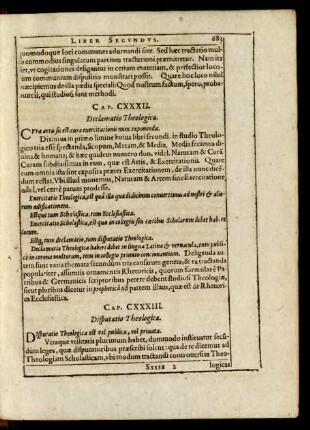 LIBER SECVNDVS. 683
quomodoque loci communes adornandi sint. Sed hæc tractatio mul-
commodius singularum partium tractationi præmittetur. Nam ita
fiet, vt cogitationes desigantur in certam materiam, & perfectior loco-
um communium dispositio monstrari posse. Quare hoc loco nihil
præcipiemus de illa pædia speciali: Quod nostrum factum, spero, proba-
bunt ii, qui studiosi sunt methodi.
CAP. CXXXII.
Declamatio Theologica.
Diximus in primo limine huius libri secundi, in studio Theolo-
gico tria esse spectanda, Scopum, Metam, & Media. Media fecimus di-
uina & humana; & hæc quidem numero duo, videl. Naturam & Curā.
Curam subdistinximus in eam, quæ est Artis, & Exercitationis. Quare
cum omnia ista sint exposita præter Exercitationem, de illa nunc dicē-
dum restat. Vbi illud monemus, Naturam & Artem sine Exercitatione
nihil, vel certè parum prodesse.
Exercitatio Theologica, est quâ illa quæ didicimus conuertimus ad nostri & alio-
rum ædificationem.
Estque tum Scholastica, tum Ecclesiastica.
Exercitatio Scholastica, est quæ in collegiis seu cœtibus Scholarum debet hab.re
locum.
Estq, tum declamatio, tum disputatio Theologica.
Declamatio Theologica haberi debet in lingua Latina & vernacula, tam publi-
cè in corona multorum, tum in collegio priuato concionantium. Deligenda au-
tem sunt varia themata secundum tria causarum genera, & ea tractanda
populariter, assumtis ornamentis Rhetoricis, quorum formulas è Pa-
tribus & Germanicis scriptoribus petere debent studiosi Theologiæ,
sicut pluribus dicetur in prophetica ad partem illam, quæ est de Rhetori-
ca Ecclesiastica.
CAP. CXXXIII.
Disputatio Theologica.
Disputatio Theologica est vel publica, vel priuata.
Vtraque vtilitatis plurimum habet, dummodo instituatur secun-
dum leges, quæ disputatoribus præscribi solent: qua de re dicemus ad
Theologiam Scholasticam, vbi modum tractandi controuersias Theo-
Sssss 2 logicas